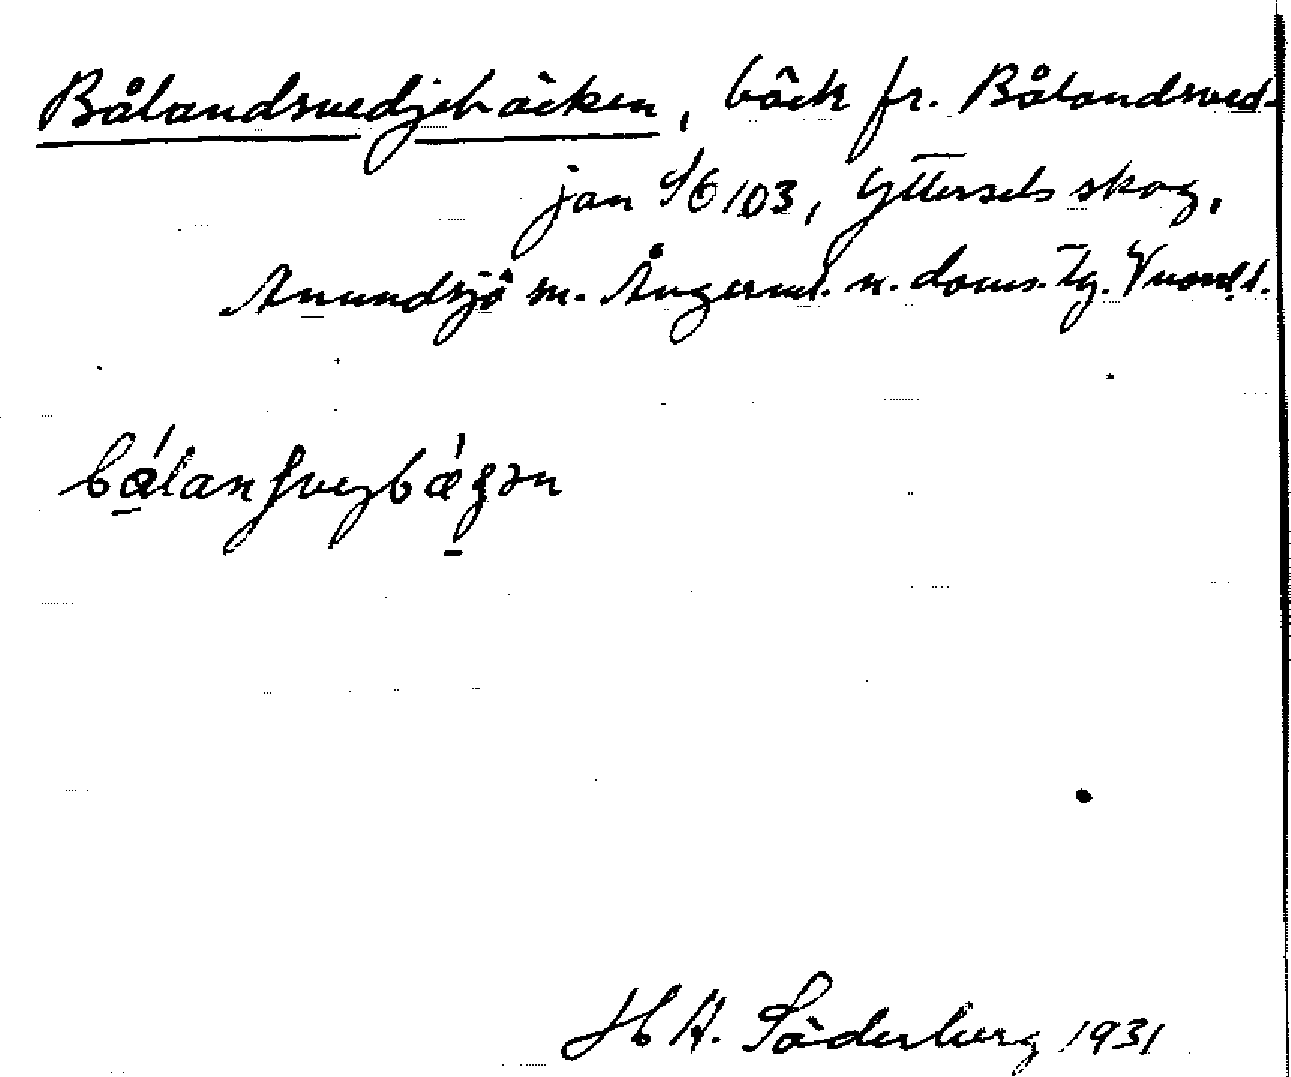 Bålandsvedjebäcken, bäck fr. Bålandsved-
jan 4/6 103, Yttersels skog,
Anundsjö sn. Ångerml. n. doms. tg. Vnorrl. l.
H A. Söderberg 1931